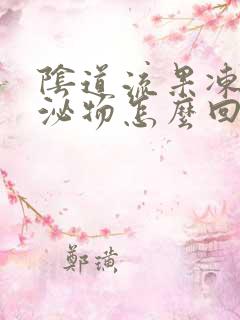 陰道流果凍
泌物怎麼回
鄭璜